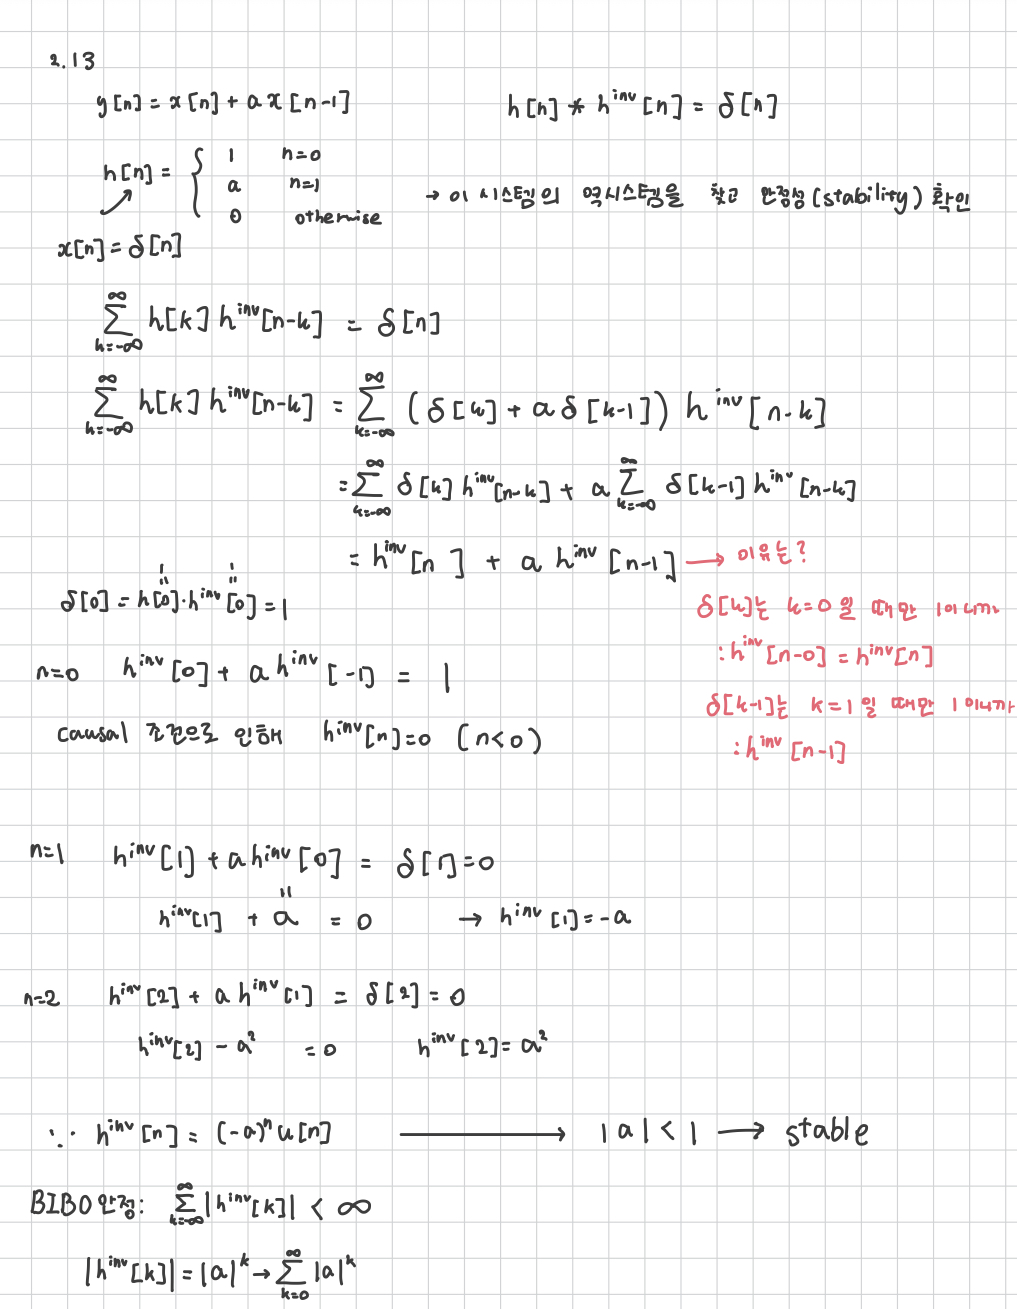 2.13
y[n] = x[n] + a x[n-1]
h[n] * h^inv[n] = δ[n]
h[n] = { 1 n=0
a n=1
0 otherwise
→ 이 시스템의 역시스템을 찾고 안정성(stability) 확인
x[n] = δ[n]
∑_{k=-∞}^{∞} h[k] h^inv[n-k] = δ[n]
∑_{k=-∞}^{∞} h[k] h^inv[n-k] = ∑_{k=-∞}^{∞} (δ[k] + a δ[k-1]) h^inv[n-k]
= ∑_{k=-∞}^{∞} δ[k] h^inv[n-k] + a ∑_{k=-∞}^{∞} δ[k-1] h^inv[n-k]
= h^inv[n] + a h^inv[n-1] → 이유는?
1 1
" "
δ[0] = h[0]·h^inv[0] = 1
δ[k]는 k=0 일 때만 1이니까
: h^inv[n-0] = h^inv[n]
n=0 h^inv[0] + a h^inv[-1] = 1
δ[k-1]는 k=1일 때만 1이니까
causal 조건으로 인해 h^inv[n]=0 (n<0)
: h^inv[n-1]
n=1 h^inv[1] + a h^inv[0] = δ[1] = 0
"
h^inv[1] + a = 0 → h^inv[1] = -a
n=2 h^inv[2] + a h^inv[1] = δ[2] = 0
h^inv[2] - a² = 0 h^inv[2] = a²
∵ h^inv[n] = (-a)^n u[n] → |a| < 1 → stable
BIBO 안정: ∑_{k=-∞}^{∞} |h^inv[k]| < ∞
|h^inv[k]| = |a|^k → ∑_{k=0}^{∞} |a|^k